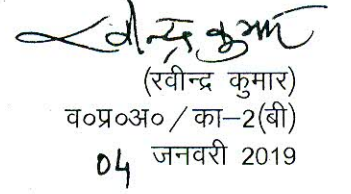 रवीन्द्र कुमार
(रवीन्द्र कुमार)
व०प्र०अ० / का–2(बी)
04 जनवरी 2019